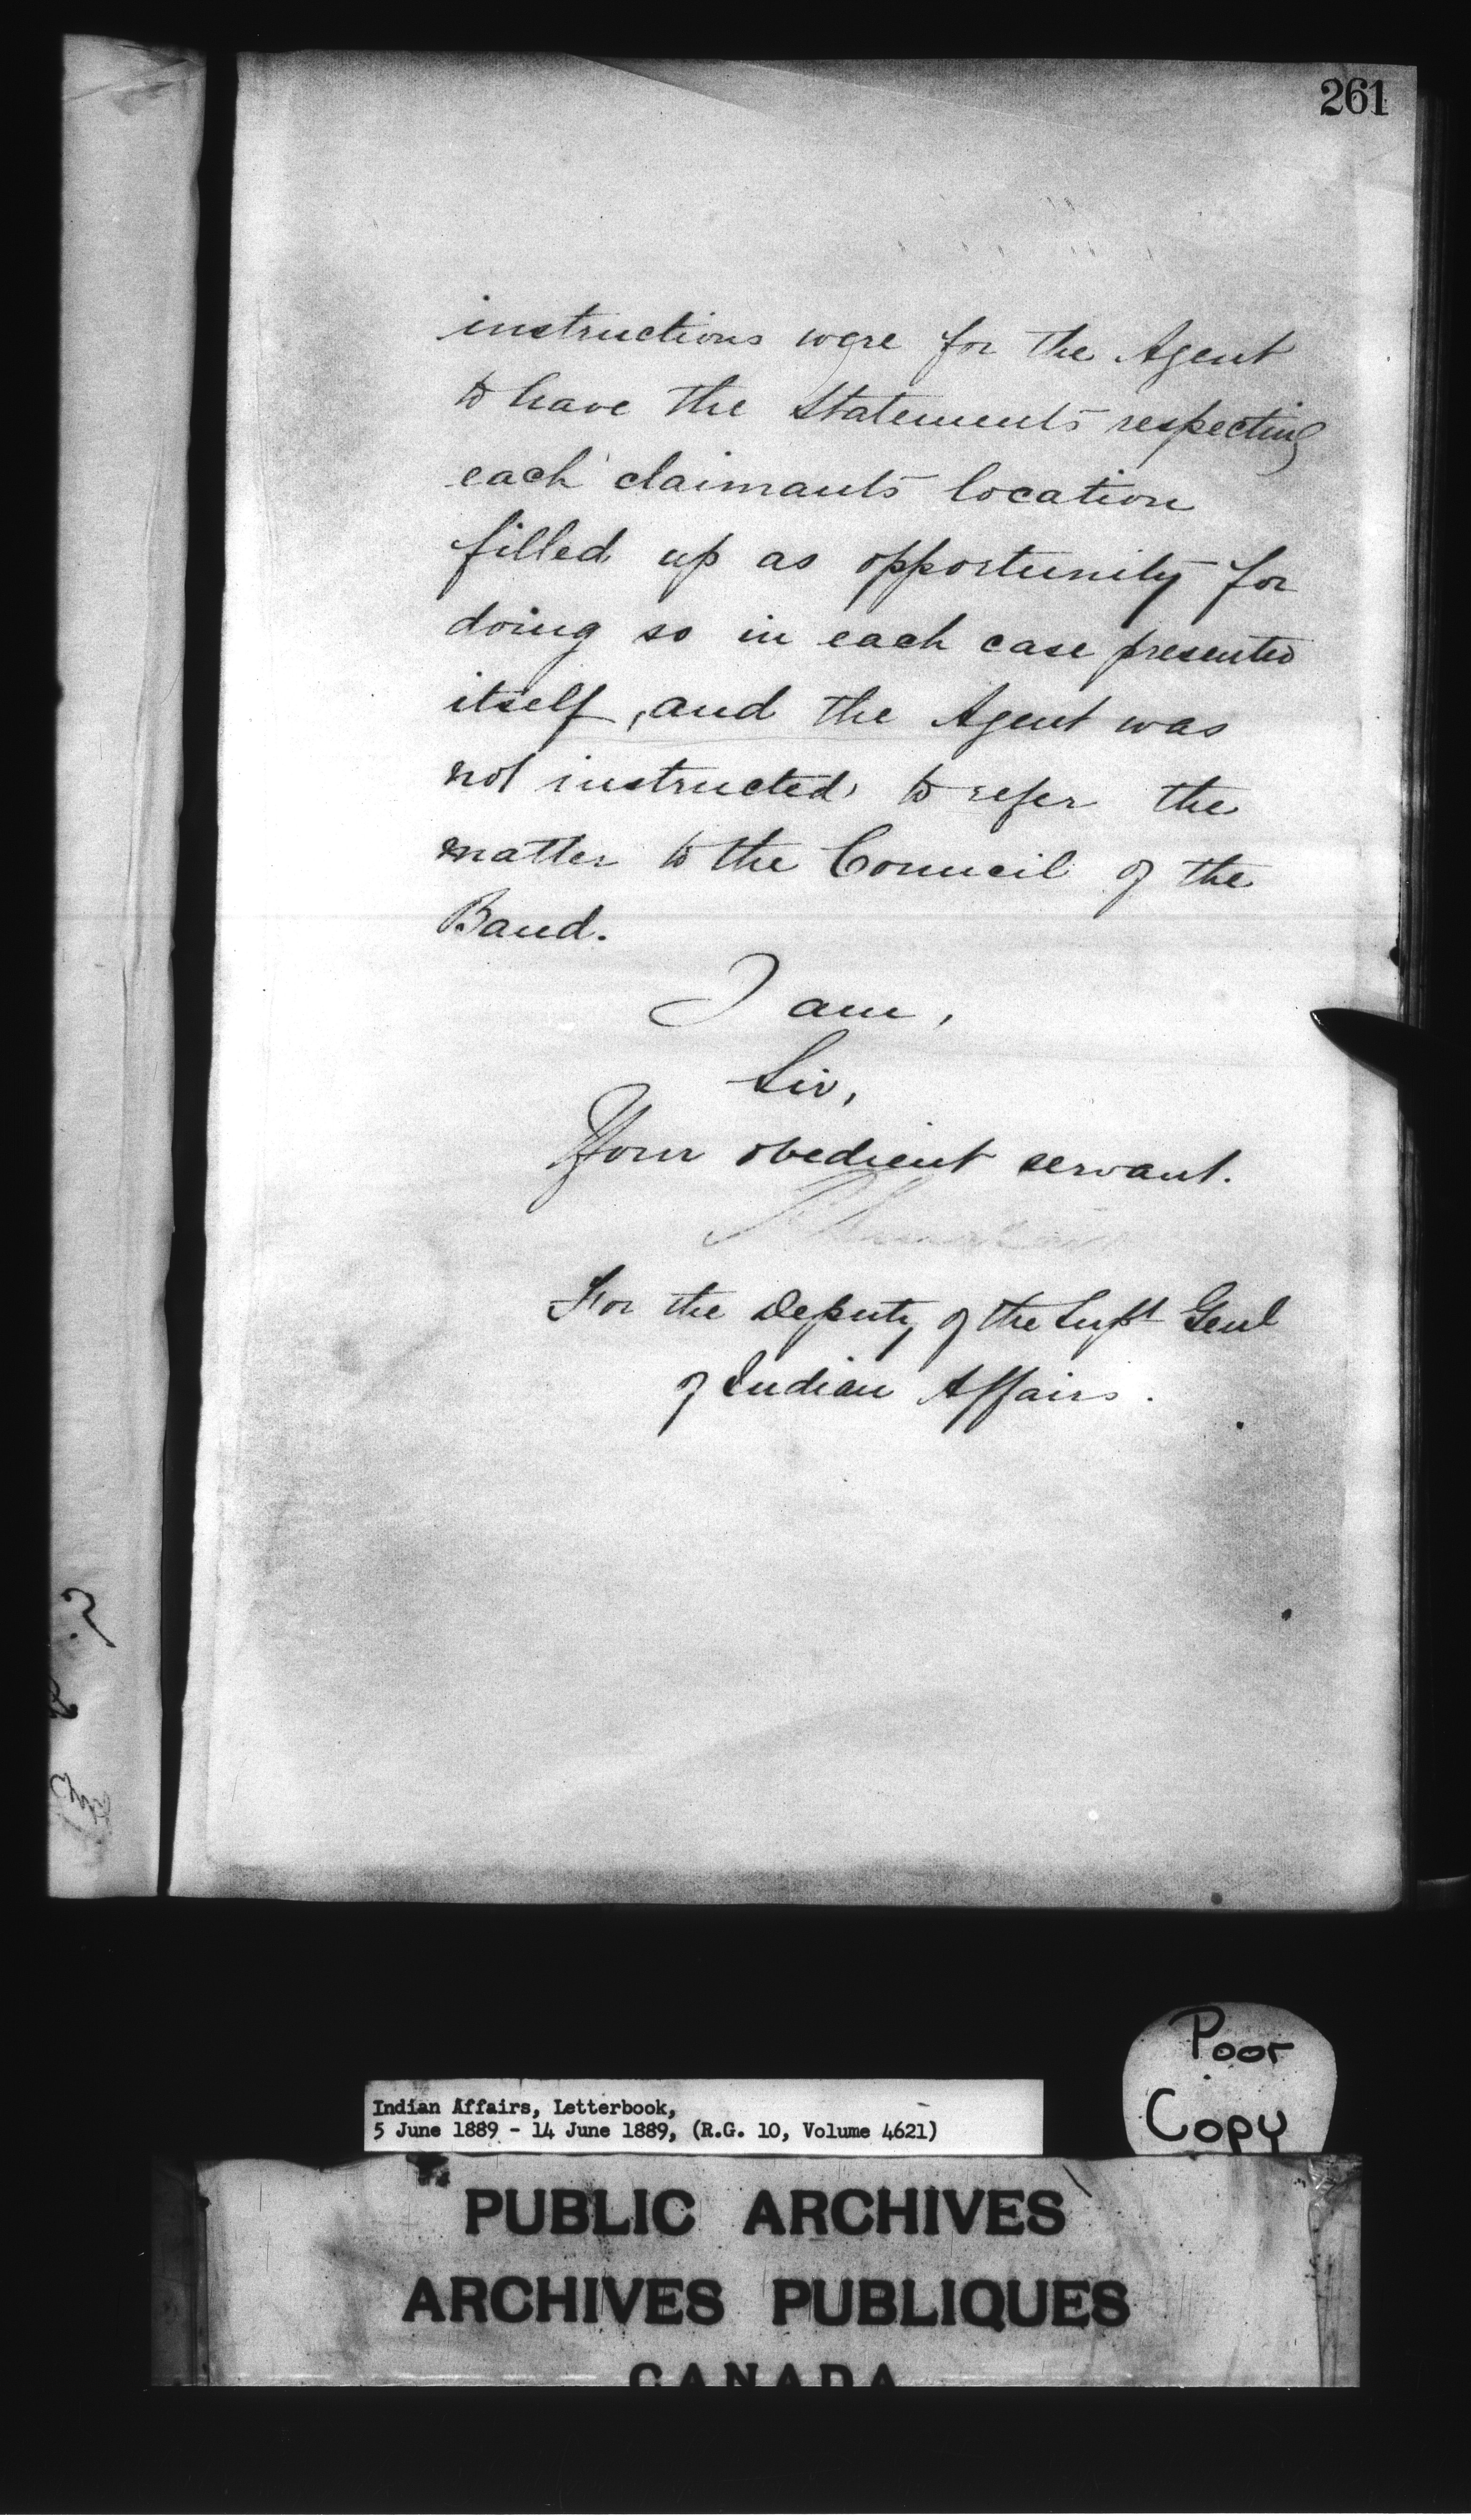 261
instructions were for the Agent
to have the Statements respecting
each claimants location
filled up as opportunity for
doing so in each case presented
itself, and the Agent was
not instructed to refer the
matter to the Council of the
Band.
I am,
Sir,
Your obedient servant.
For the Deputy of the Supt Genl
of Indian Affairs.
Poor
Copy
Indian Affairs, Letterbook,
5 June 1889 - 14 June 1889, (R.G. 10, Volume 4621)
PUBLIC ARCHIVES
ARCHIVES PUBLIQUES
CANADA